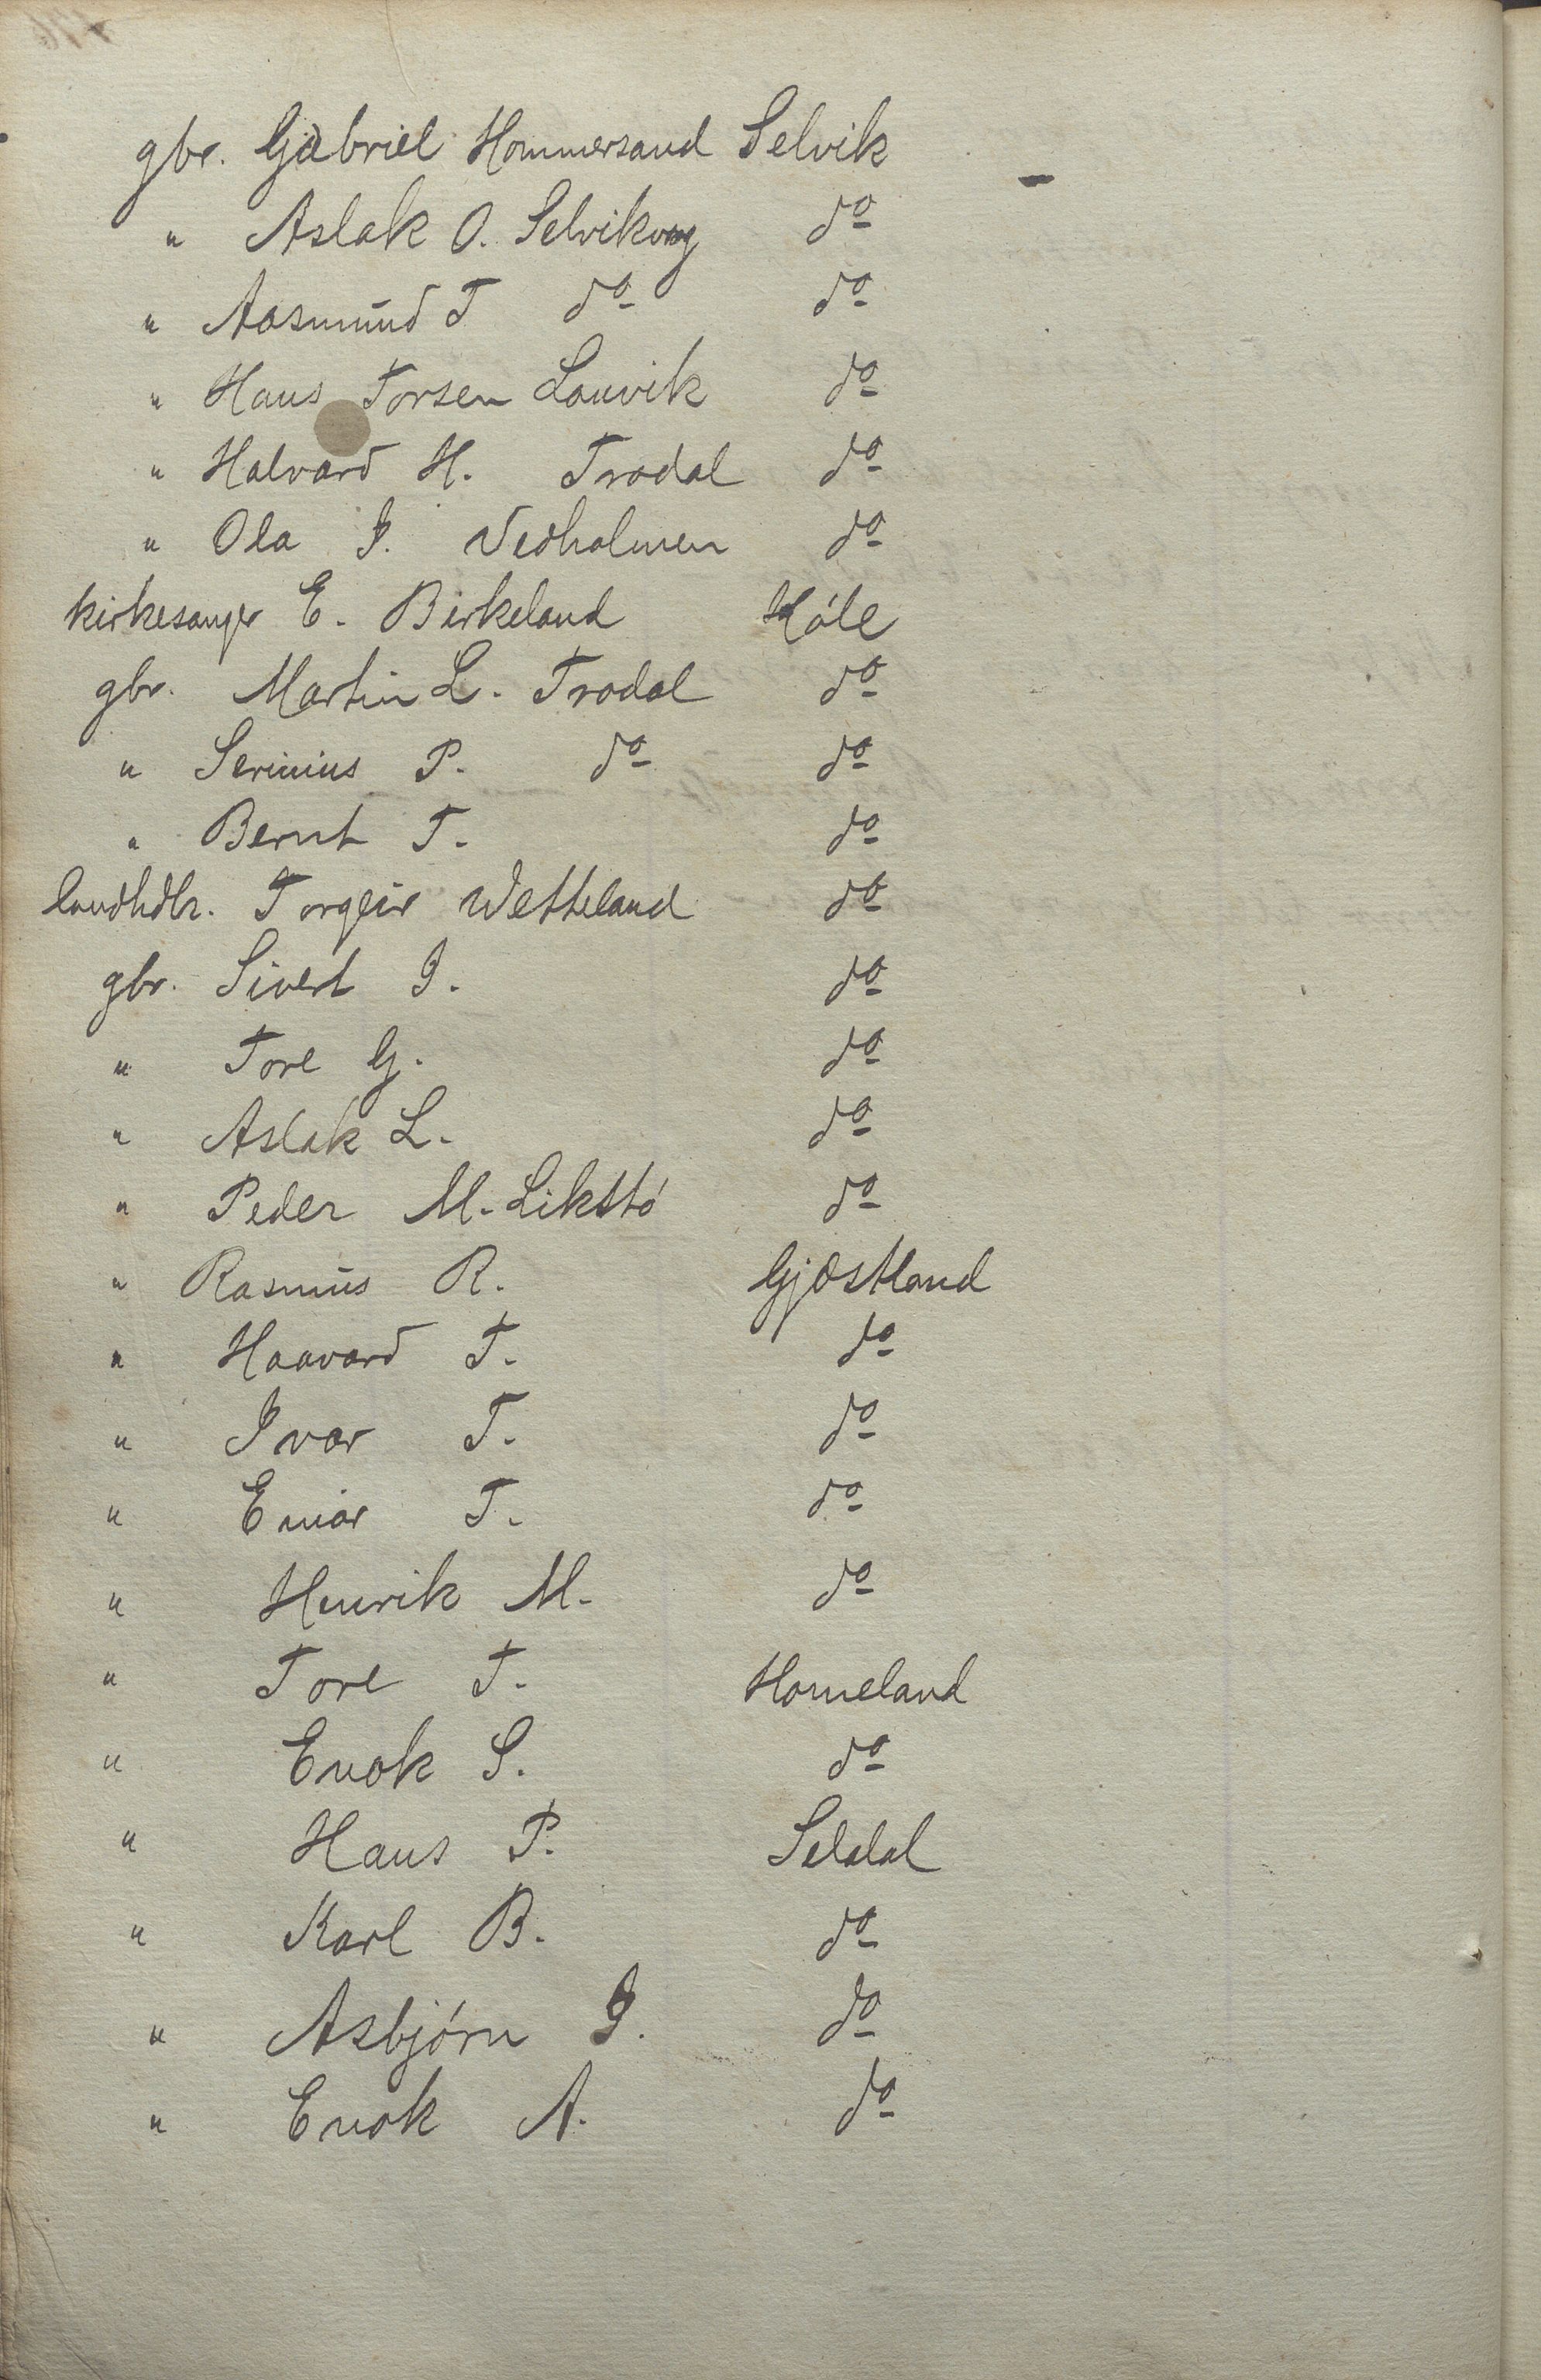 gbr. Gabriel Hommersand Selvik
" Aslak O. Selvikvåg do
" Aasmund T do do
" Hans Torsen Lauvik do
" Halvard H. Trodal do
" Ola I. Vedholmen do
kirkesanger E. Birkeland Höle
gbr. Martin L. Trodal do
" Serinius P. do do
" Bernt T. do
landhdlr. Torgeir Wetteland do
gbr. Sivert I. do
" Tore G. do
" Aslak L. do
" Peder M. Likstö do
" Rasmus R. Gjöstland
" Haavard T. do
" Ivar T. do
" Einar T. do
" Henrik M. do
" Tore T. Homeland
" Enok S. do
" Hans P. Seldal
" Karl B. do
" Asbjörn I. do
" Enok A. do